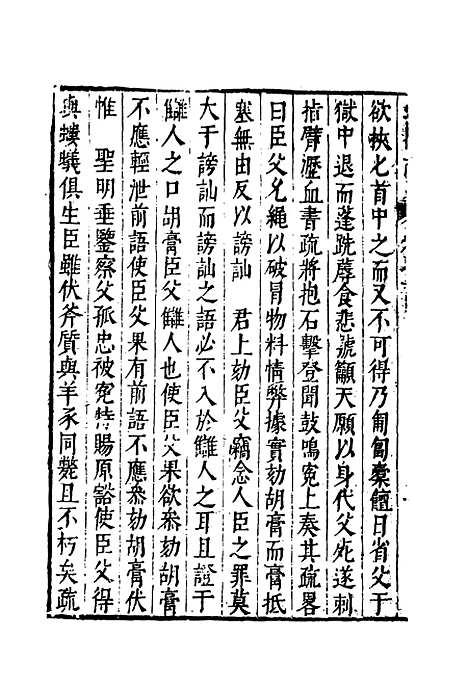 欲挾匕首中之而又不可得乃匍匐橐饘日省父于
獄中退而蓬跣蓐食悲號籲天願以身代父死遂刺
指臂瀝血書疏將抱石擊登聞鼓鳴冤上奏其疏畧
曰臣父允繩以破冒物料情弊據實劾胡膏而膏抵
塞無由反以謗訕　君上劾臣父竊念人臣之罪莫
大于謗訕而謗訕之語必不入於讎人之耳且證于
讎人之口胡膏臣父讎人也使臣父果欲叅劾胡膏
不應輕泄前語使臣父果有前語不應叅劾胡膏伏
惟　聖明垂鑒察父孤忠被冤特賜原豁使臣父得
與螻蟻俱生臣雖伏斧質與羊豕同斃且不朽矣疏